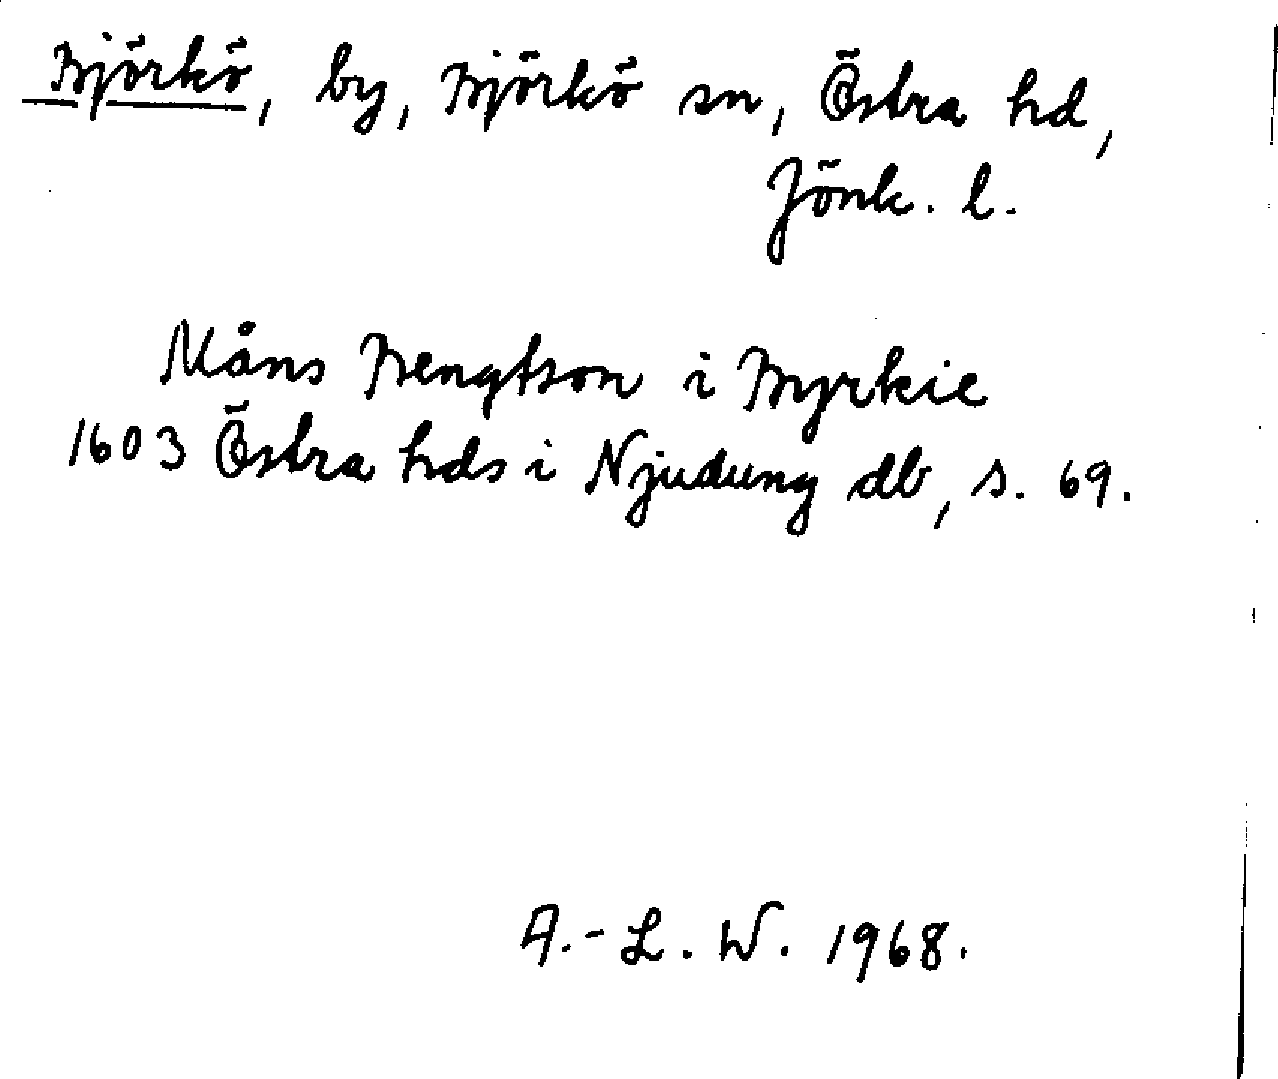 Björkö, by, Björkö sn, Östra hd,
Jönk. l.
Måns Bengtson i Byrkie
1603 Östra hds i Njudung db, s. 69.
A.-L. W. 1968.